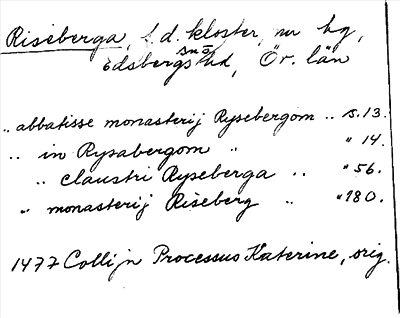 Riseberga, f.d. kloster, nu hg,
Edsbergs snö hd, Ör. län
.. abbatisse monasterij Rysebergom .. s. 13.
.. in Rysabergom .. " 14.
.. claustri Ryseberga .. " 56.
.. monasterij Riseberg .. " 180.
1477 Collijn Processus Katerine, orig.